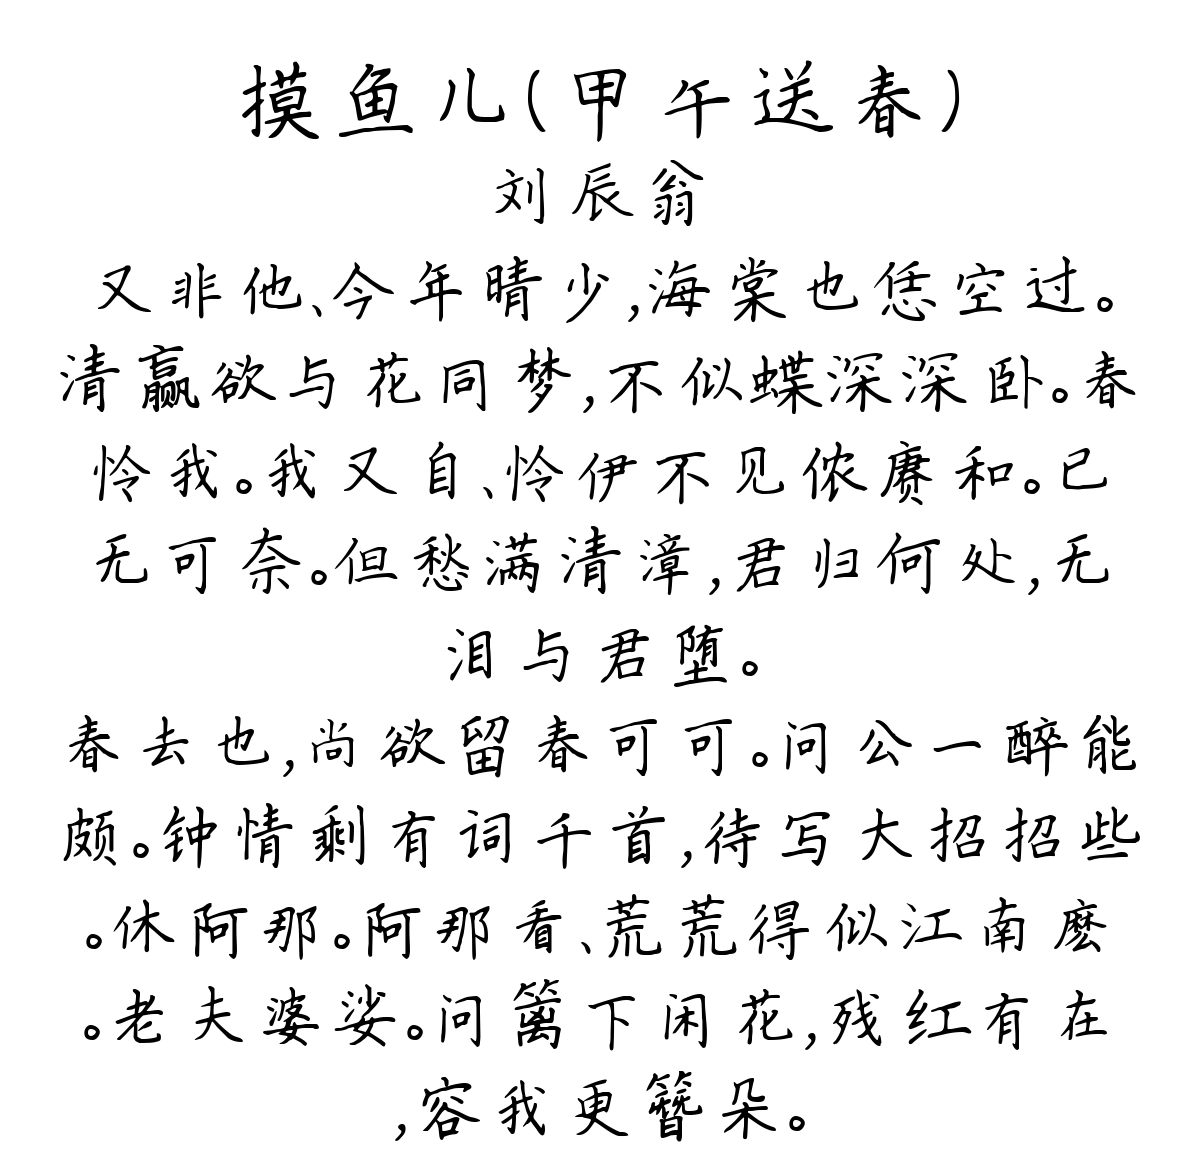 摸鱼儿(甲午送春)
刘辰翁
又非他、今年晴少,海棠也恁空过。
清赢欲与花同梦,不似蝶深深卧。春
怜我。我又自、怜伊不见侬赓和。已
无可奈。但愁满清漳,君归何处,无
泪与君堕。
春去也,尚欲留春可可。问公一醉能
颇。钟情剩有词千首,待写大招招些
。休阿那。阿那看、荒荒得似江南麽
。老夫婆娑。问篱下闲花,残红有在
,容我更簪朵。